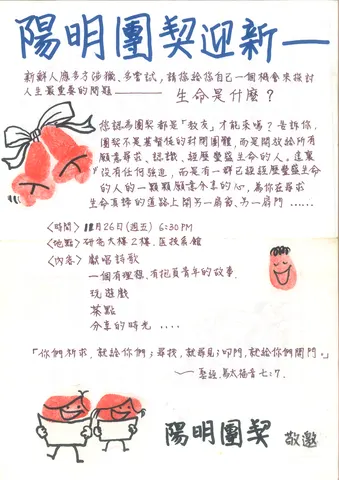 陽明團契迎新一
新鮮人應多方涉獵、多嘗試,請你給你自己一個機會來探討
人生最重要的問題——生命是什麼?
你認為團契都是「教友」才能來嗎?告訴你,
團契不是基督徒的封閉團體,而是開放給所有
願意尋求、認識、經歷豐盛生命的人。這裏
沒有任何強迫,而是有一群已經經歷豐盛生命
的人的一顆顆願意分享的心,為你在尋求
生命真諦的道路上開另一扇窗、另一扇門……
〈時間〉 11月26日(週五) 6:30 PM
〈地點〉 研究大樓2樓,醫技系館
〈內容〉 獻唱詩歌
一個有理想、有抱負青年的故事.
玩遊戲
茶點
分享的時光 ....
「你們祈求,就給你們;尋找,就尋見;叩門,就給你們開門。」
～聖經.馬太福音七:7.
陽明團契 敬邀